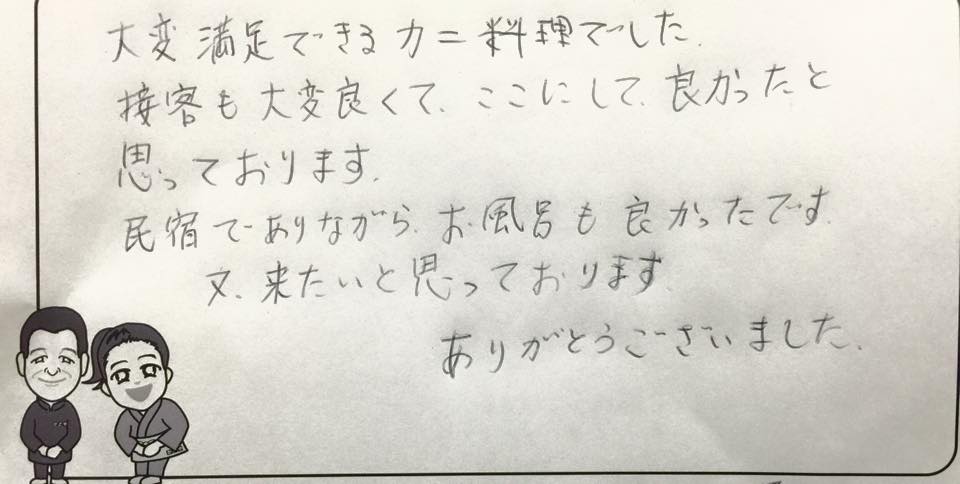 大変満足できるカニ料理でした.
接客も大変良くて、ここにして、良かったと
思っております.
民宿でありながら、お風呂も良かったです.
又、来たいと思っております.
ありがとうございました.